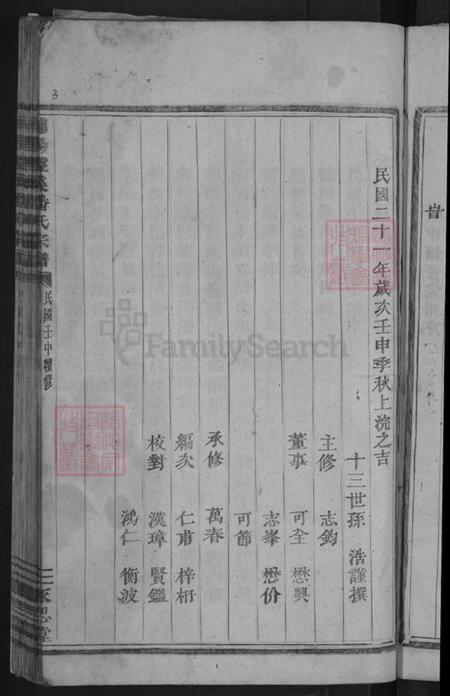 民國二十一年歲次壬申季秋上浣之吉
十三世孫 浩謹撰
主修 志鈞
董事 可全 懋興
志峯 懋份
可節
承修 萬春
編次 仁甫 梓栢
校對 漢璋 賢鑑
鴻仁 衡波
潘氏宗譜
民國壬申續修
FamilySearch